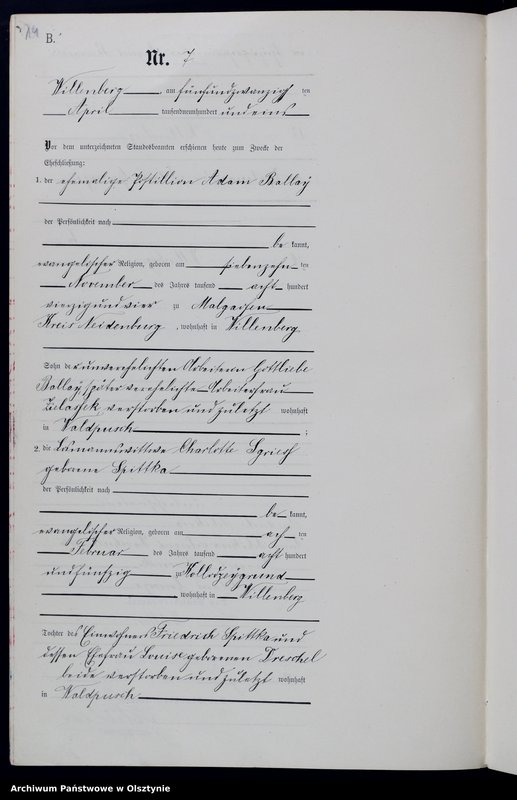 B.
Nr. 7
Willenberg am fünfundzwanzig ten
April tausendneunhundert undeins
Vor dem unterzeichneten Standesbeamten erschienen heute zum Zwecke der
Eheschließung:
1. der ehemalige Postillion Adam Ballay
der Persönlichkeit nach
be kannt,
evangelischer Religion, geboren am siebenzehn ten
November des Jahres tausend acht hundert
vierzigundvier zu Malgaofen
Kreis Neidenburg, wohnhaft in Willenberg
Sohn der unverehelichten Arbeiterin Gottliebe
Ballay, später verehelichte Arbeiterfrau
verstorben und zuletzt wohnhaft
in Waldpusch ;
2. die Losmannswittwe Charlotte
geborene Spittka
der Persönlichkeit nach
be kannt,
evangelischer Religion, geboren am ach ten
Februar des Jahres tausend acht hundert
undfünfzig zu
wohnhaft in Willenberg
Tochter des Einwohners Friedrich Spittka und
dessen Ehefrau Louise geborenen Dreschel
beide verstorben und zuletzt wohnhaft
in Waldpusch
Archiwum Państwowe w Olsztynie